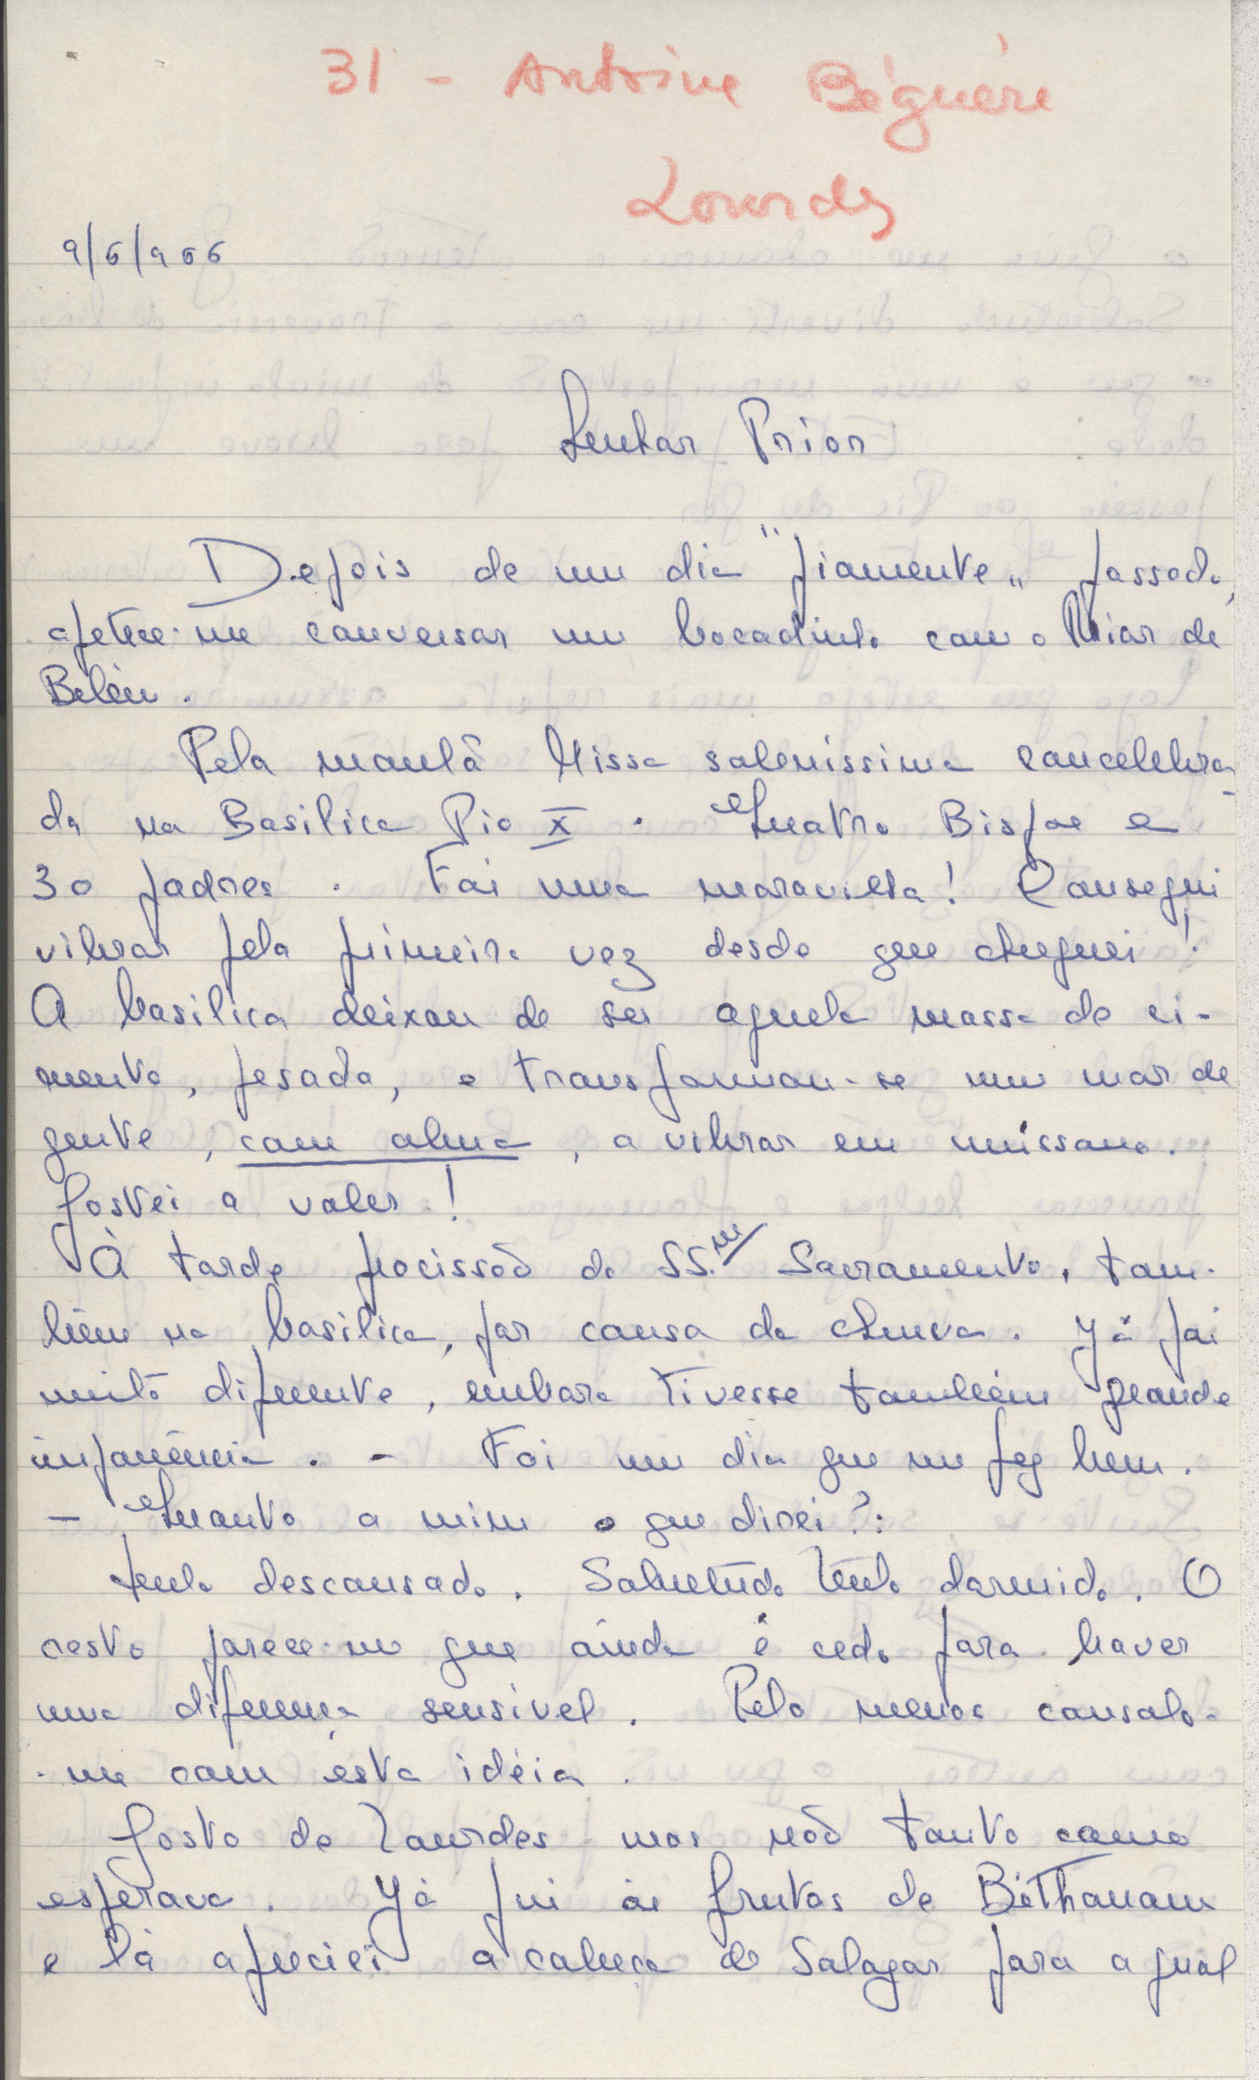 31 - Antoine Béguère
Lourdes
9/6/966
Senhor Prior
Depois de um dia "piamente" passado,
apetece-me conversar um bocadinho com o Prior de
Belém.
Pela manhã Missa solenissima concelebra-
da na Basilica Pio X. Quatro Bispos e
30 padres. Foi uma maravilha! Consegui
vibrar pela primeira vez desde que cheguei!
A basilica deixou de ser aquela massa de ci-
mento, pesada, e transformou-se num mar de
gente, com alma, a vibrar em unissono.
Gostei a valer!
À tarde procissão do SS.mo Sacramento, tam-
bém na basilica, por causa da chuva. Já foi
muito diferente, embora tivesse também grande
imponência. - Foi um dia que me fez bem.
- Quanto a mim o que direi?:
Tenho descansado. Sobretudo tenho dormido. O
resto parece-me que ainda é cedo para haver
uma diferença sensivel. Pelo menos consolo-
-me com esta idéia.
Gosto de Lourdes mas não tanto como
esperava. Já fui às grutas de Béthanam
e lá apreciei a cabeça do Salazar para a qual